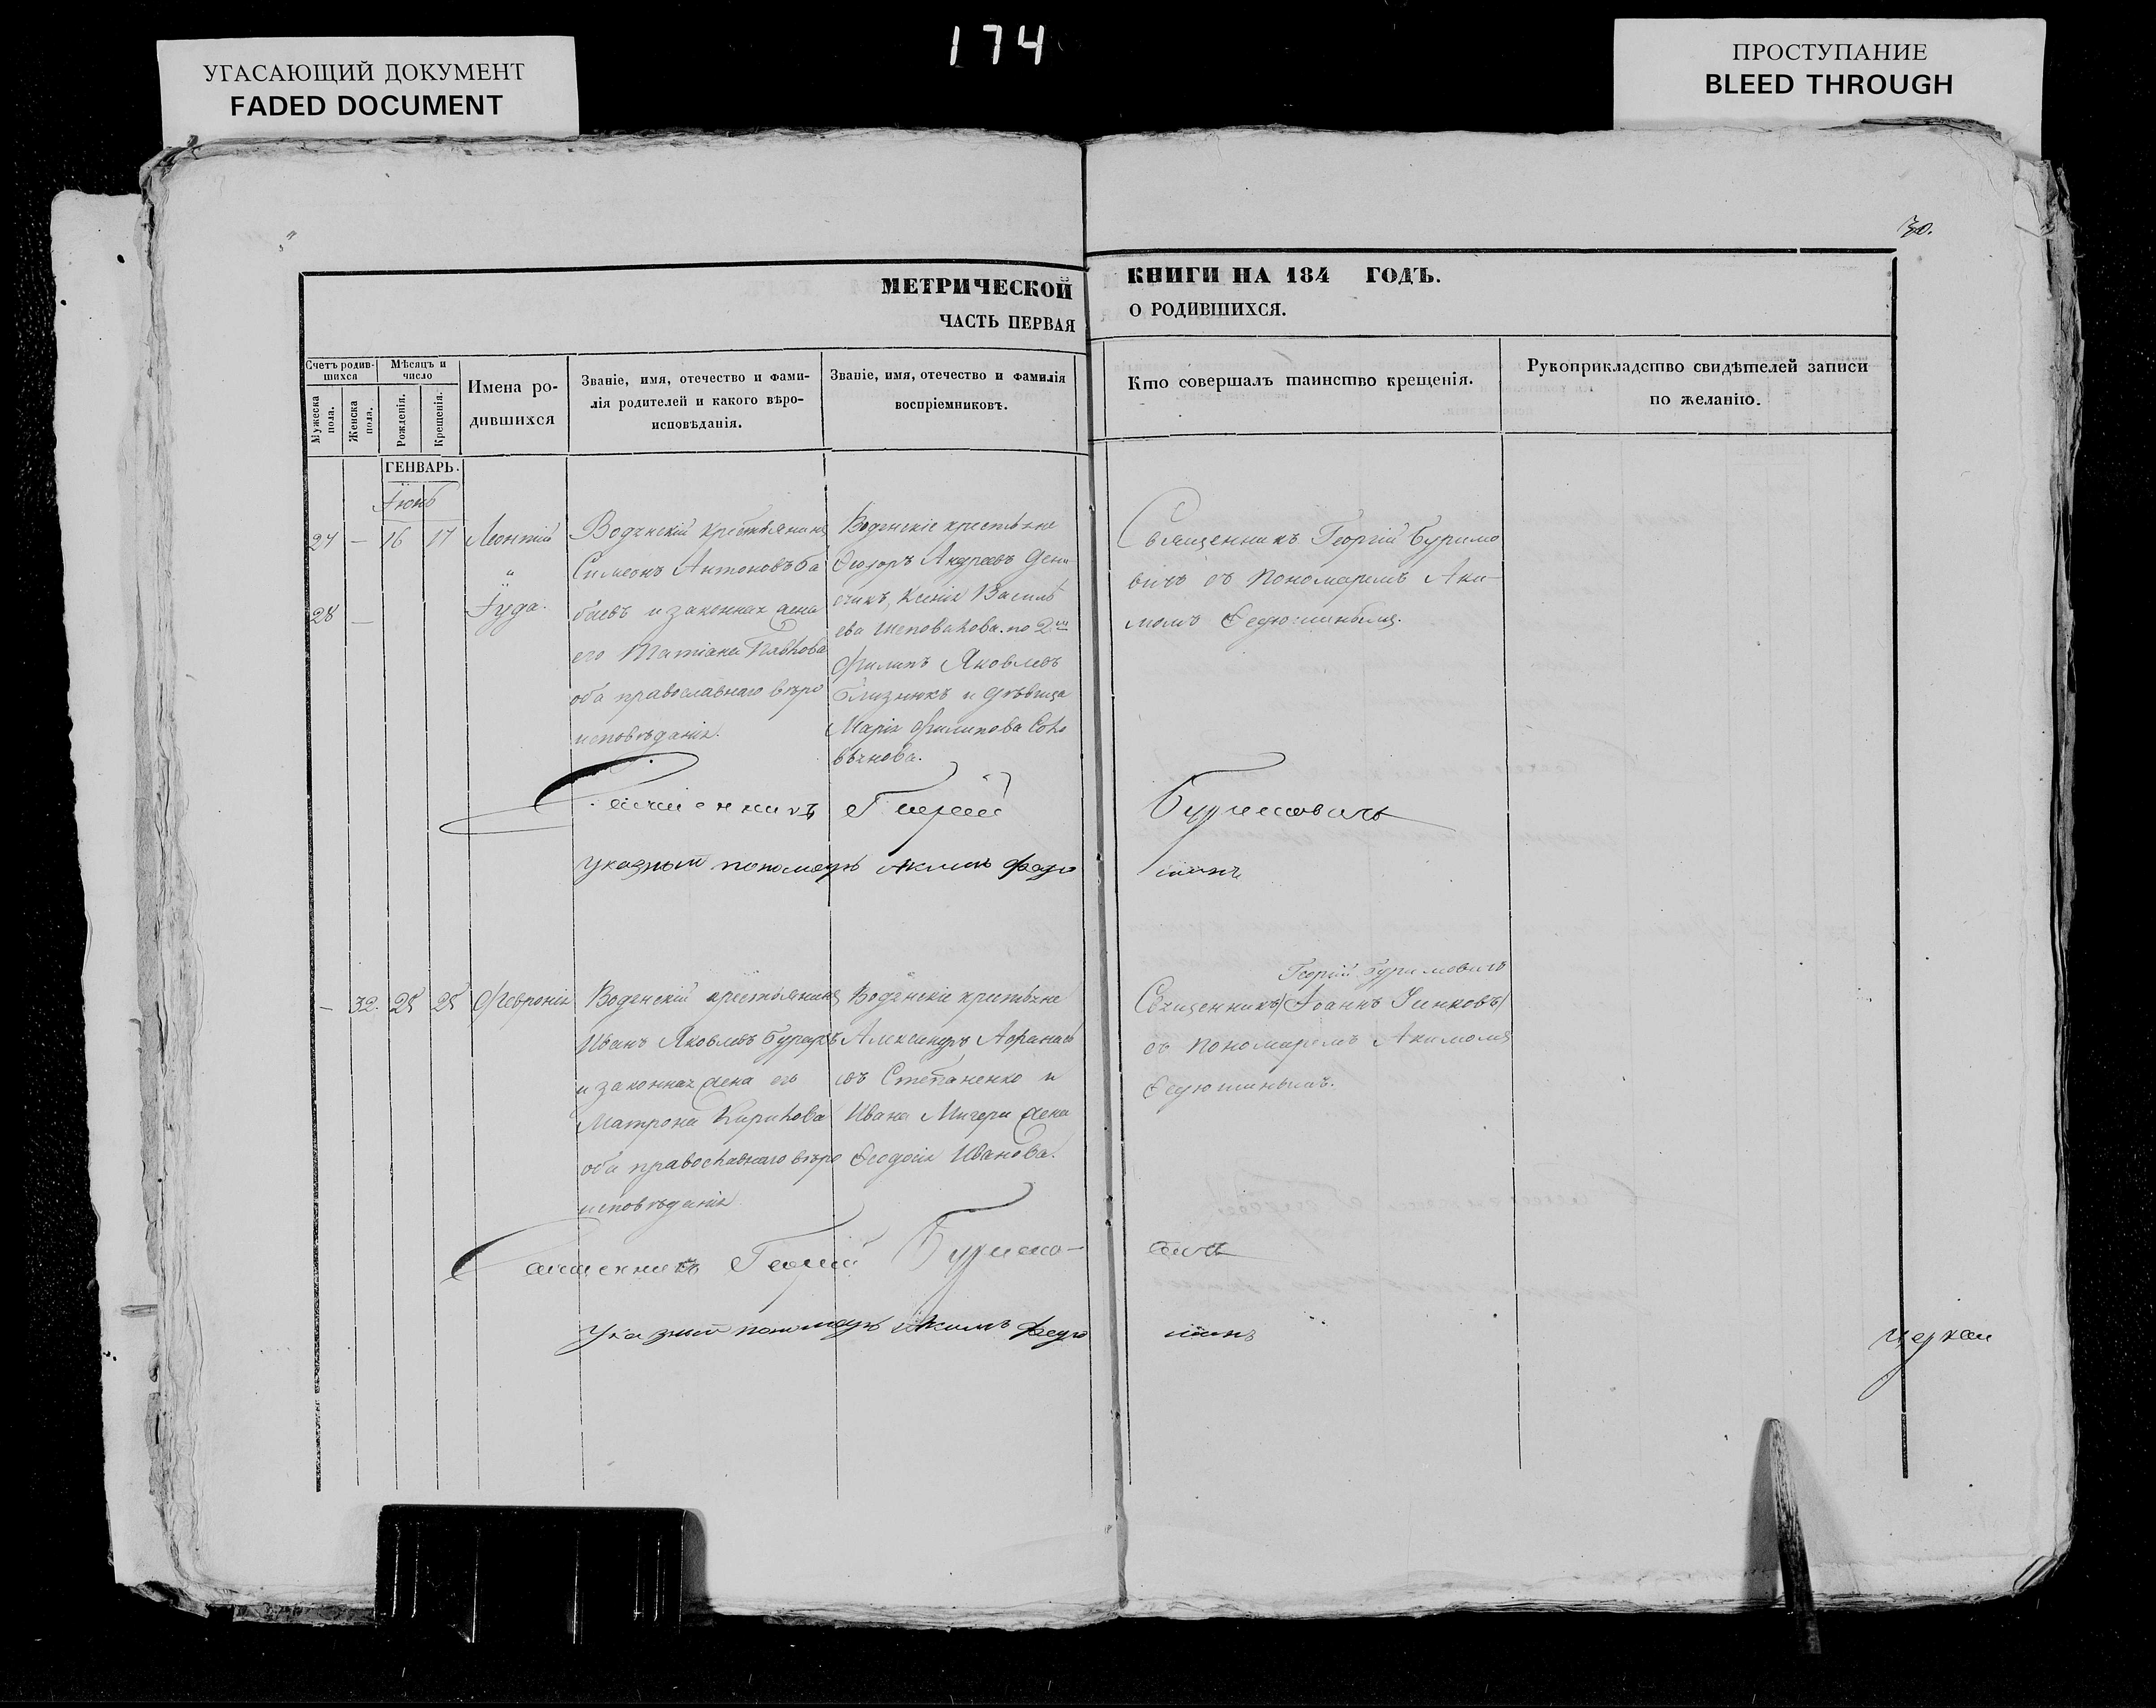 174
УГАСАЮЩИЙ ДОКУМЕНТ
FADED DOCUMENT
ПРОСТУПАНИЕ
BLEED THROUGH
30.
МЕТРИЧЕСКОЙ
КНИГИ НА 184 ГОДЪ.
ЧАСТЬ ПЕРВАЯ
О РОДИВШИХСЯ.
Счетъ родив-
шихся
Мужеска пола.
Женска пола.
Мѣсяцъ и
число
Рожденія.
Крещенія.
Имена ро-
дившихся
Званіе, имя, отечество и фами-
лія родителей и какого вѣро-
исповѣданія.
Званіе, имя, отечество и фамилія
воспріемниковъ.
Кто совершалъ таинство крещенія.
Рукоприкладство свидѣтелей записи
по желанію.
ГЕНВАРЬ.
Іюнь
27 — 16 17 Леонтій
28 — Іуда.
Водянскій крестьянинъ
Симеонъ Антоновъ Ба
баевъ и законная жена
его Татіана Павлова
оба православнаго вѣро
исповѣданія.
Водянскіе крестьяне
Ѳеодоръ Андреевъ Дени
Ксенія Василь
ева по 2му
Филипъ Яковлевъ
Близнюкъ и дѣвица
Марія Филипова Соло
Священникъ Георгій Буримо
вичъ съ пономаремъ Аки-
момъ Ѳедюшинымъ.
Священникъ Георгій Буримовичъ
Указный пономарь Акимъ Федю
шинъ
— 32. 25 25 Февронія
Водянскій крестьянинъ
Иванъ Яковлевъ
и законная жена его
Матрона Кирилова
оба православнаго вѣро
исповѣданія
Водянскіе крестьяне
Александръ Афанась
евъ Степаненко и
Ивана жена
Ѳеодосія Иванова.
Георгій Буримовичъ
Священникъ Іоаннъ
съ пономаремъ Акимомъ
Ѳедюшинымъ.
Священникъ Георгій Буримо-
вичъ
Указный пономарь Акимъ Федю
шинъ
церкви